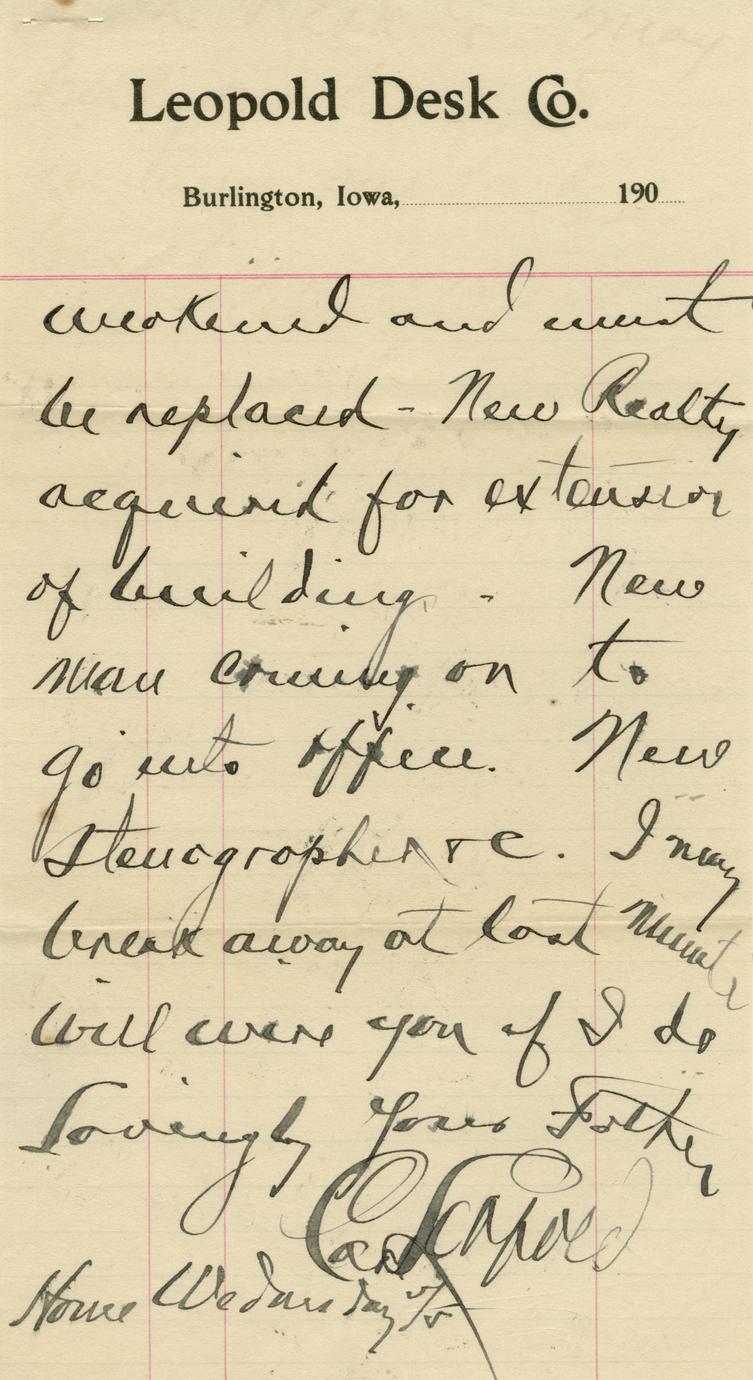 Leopold Desk Co.
Burlington, Iowa, 190
weakened and must
be replaced - New Realty
acquired for extension
of building - New
man coming on to
go into office. New
Stenographer &c. I may
break away at last minute
will wire you if I do
Lovingly Yours Father
Carl Leopold
Home Wednesday